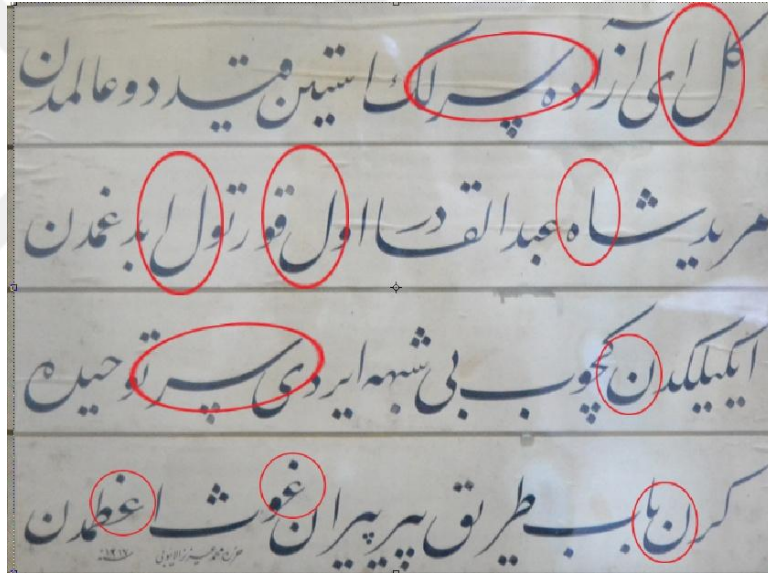 كل اى آزاده سرلك استين قيد دو عالمدن
مريد شاه عبدالقادر اول قورتول ابد غمدن
ايكيلكدن كچوب بى شبهه ايردى سر توحيده
كرن باب طريق پير پيران غوث اعظمدن